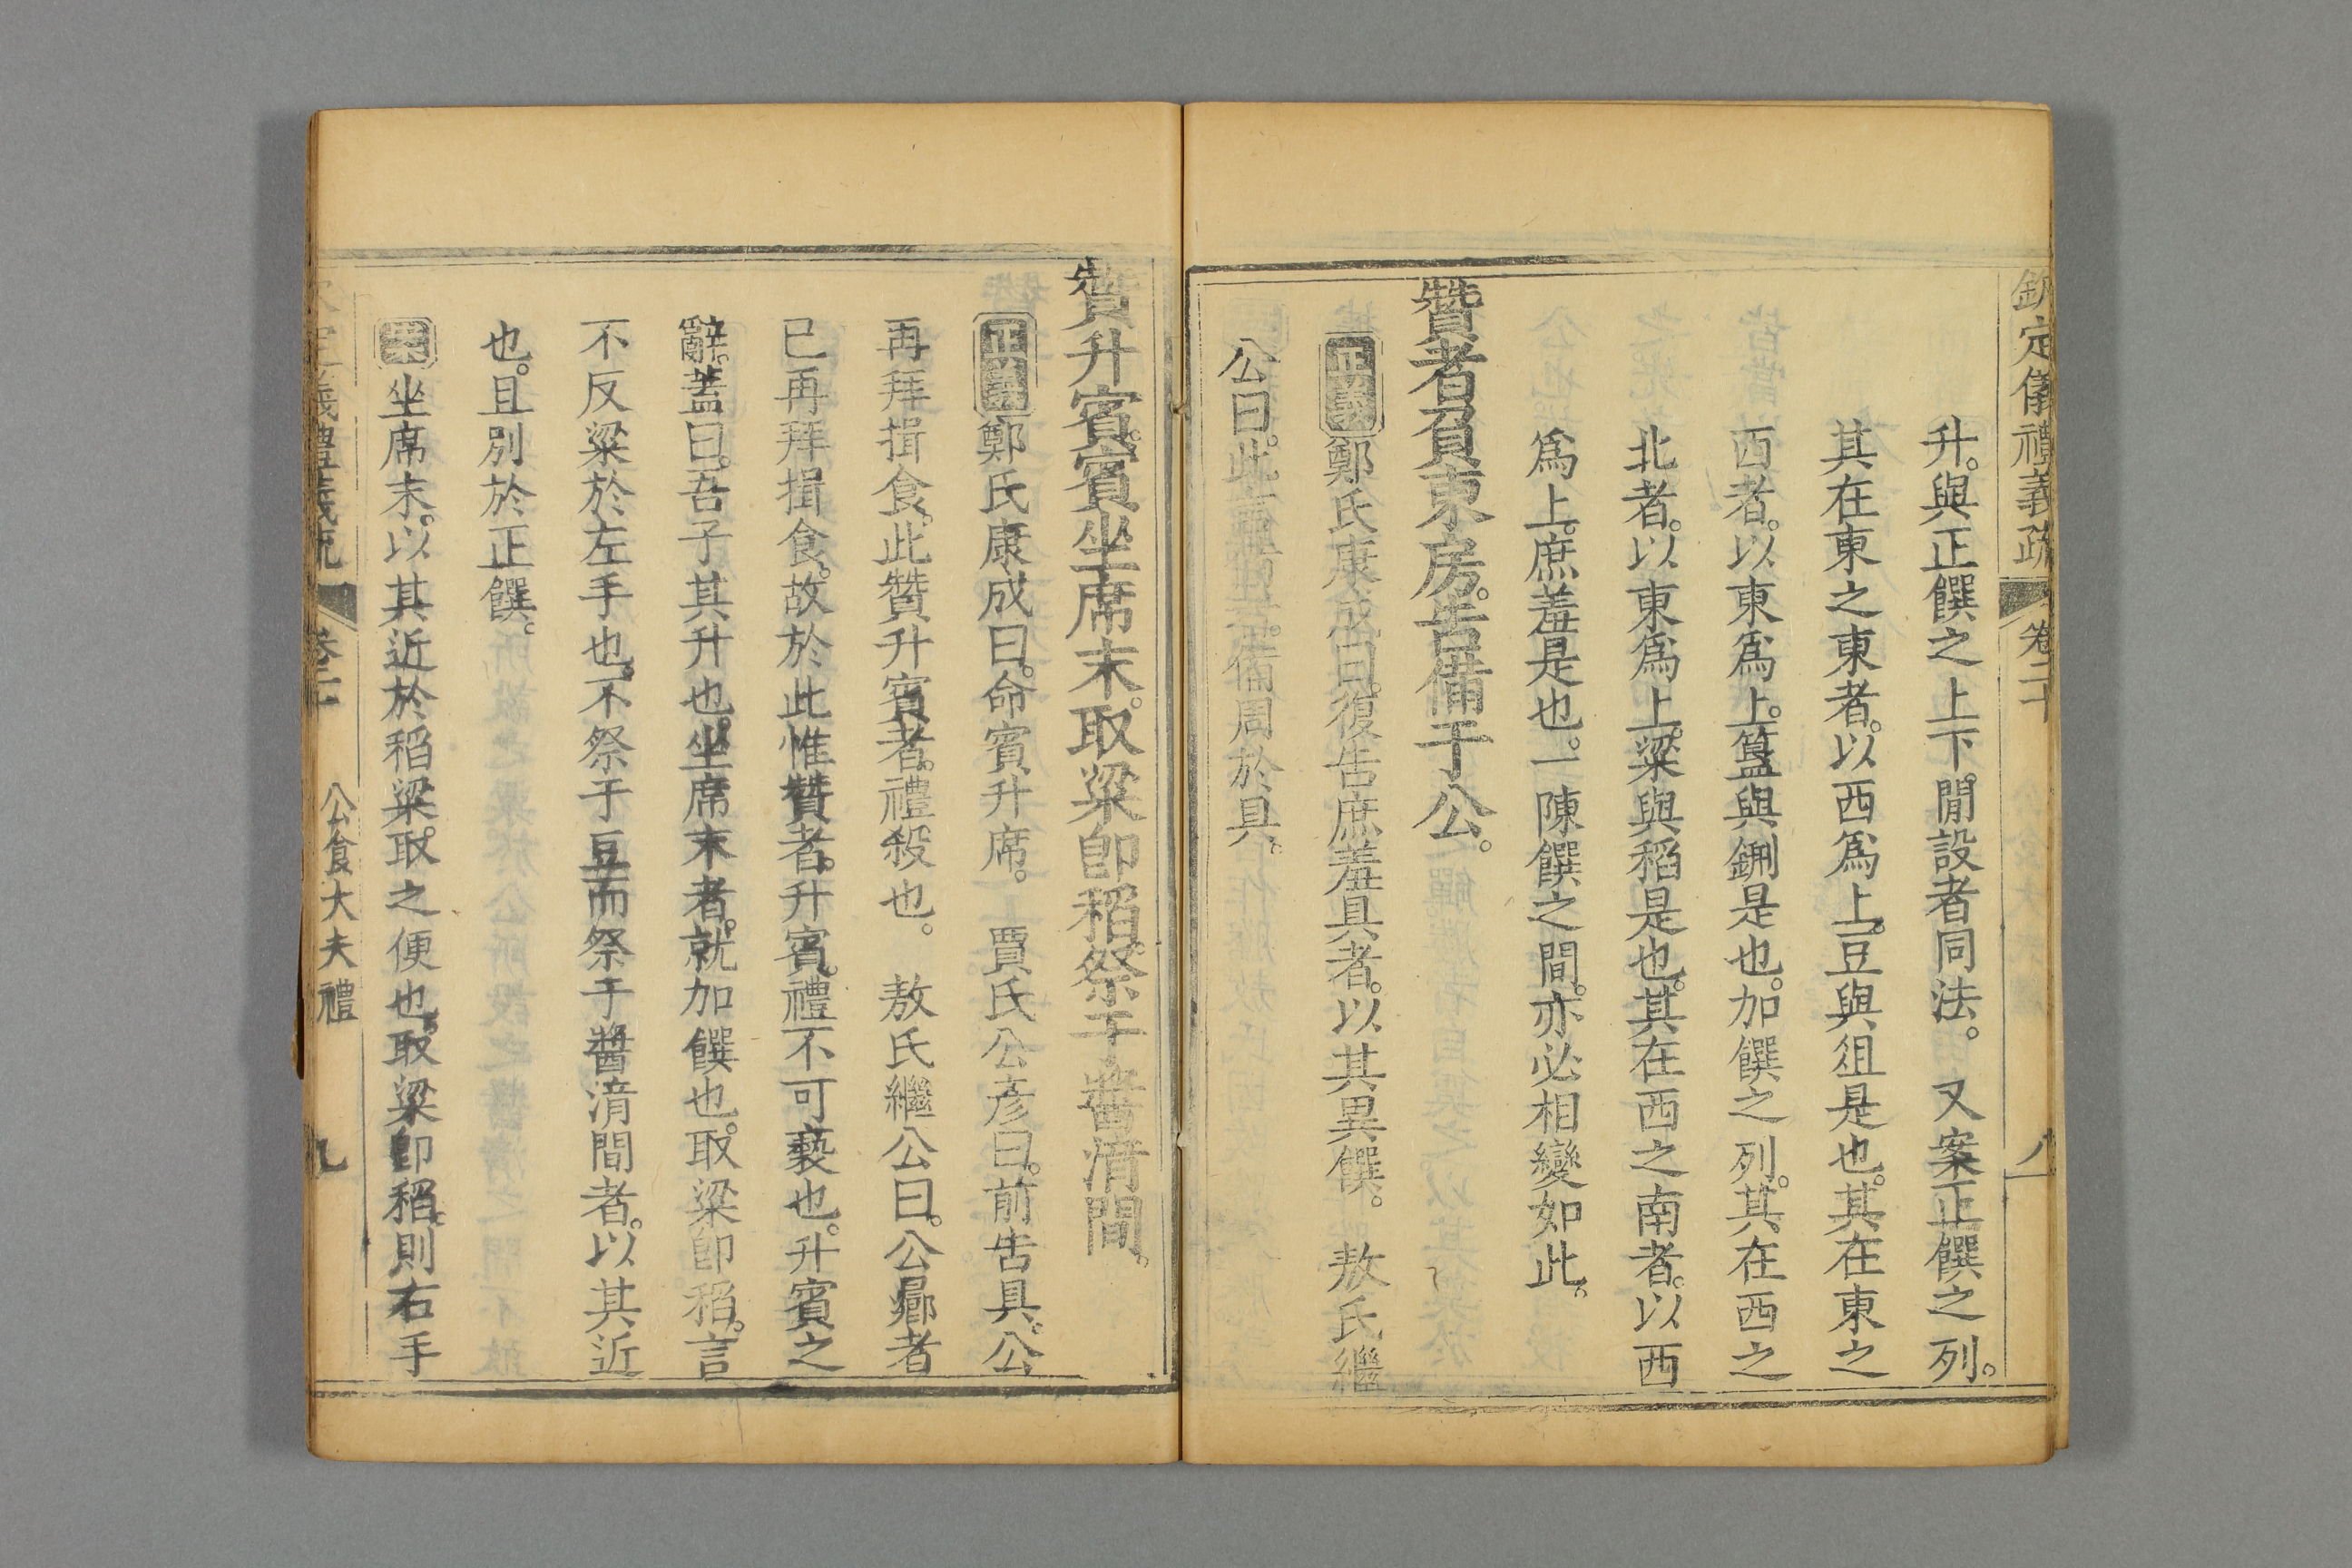 欽定儀禮義疏 卷二十 八
升。與正饌之上下。閒設者同法。 又案正饌之列。
其在東之東者。以西爲上。豆與俎是也。其在東之
西者。以東爲上。簋與鉶是也。加饌之列。其在西之
北者。以東爲上。粱與稻是也。其在西之南者。以西
爲上。庶羞是也。一陳饌之間。亦必相變如此。
贊者負東房。告備于公。
正義鄭氏康成曰。復告庶羞具者。以其異饌。 敖氏繼
公曰。此 備周於具。
贊升賓。賓坐席末。取粱卽稻。祭于醬湆間。
正義鄭氏康成曰。命賓升席。 賈氏公彥曰。前告具。公
再拜揖食。此贊升賓者。禮殺也。 敖氏繼公曰。公曏者
已再拜揖食。故於此惟贊者。升賓。禮不可褻也。升賓之
辭。蓋曰。吾子其升也。坐席末者。就加饌也。取粱卽稻。言
不反粱於左手也。不祭于豆而祭于醬湆間者。以其近
也。且別於正饌。
坐席末。以其近於稻粱。取之便也。取粱卽稻。則右手
義禮義疏 卷二十 公食大夫禮 九